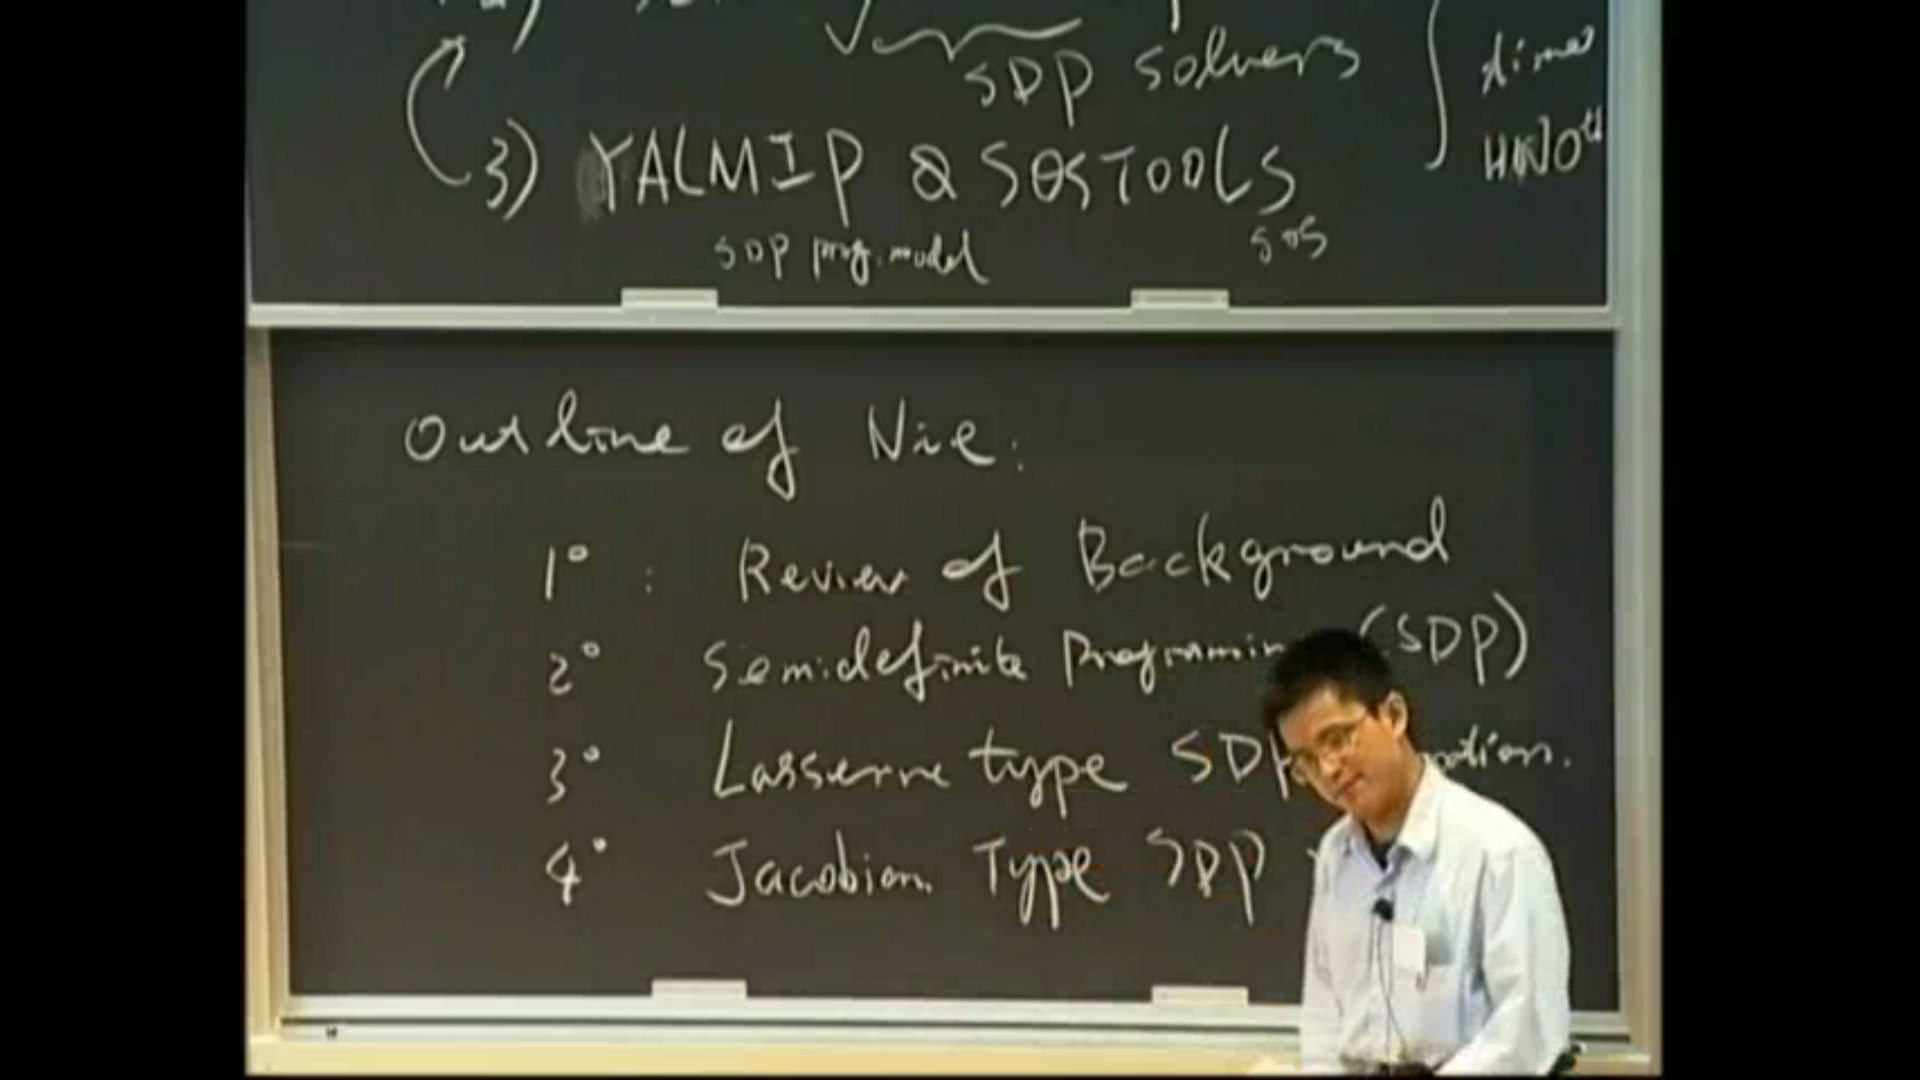 SDP solvers
3) YALMIP & SOSTOOLS
SDP prog. model SOS
Outline of Nie:
1° : Review of Background
2° Semidefinite Programmin (SDP)
3° Lasserre type SDP
4° Jacobian Type SDP